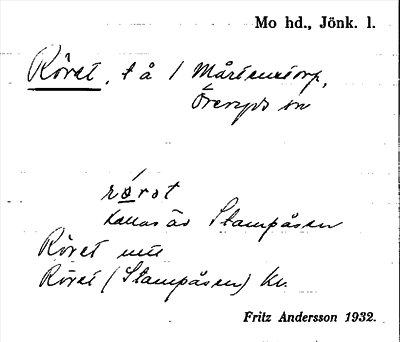 Mo hd., Jönk. l.
Röret, t å 1 Mårtenstorp,
Öreryds sn
rö́rət
kallas äv Stampåsen
Röret
Röret (Stampåsen) Kv.
Fritz Andersson 1932.